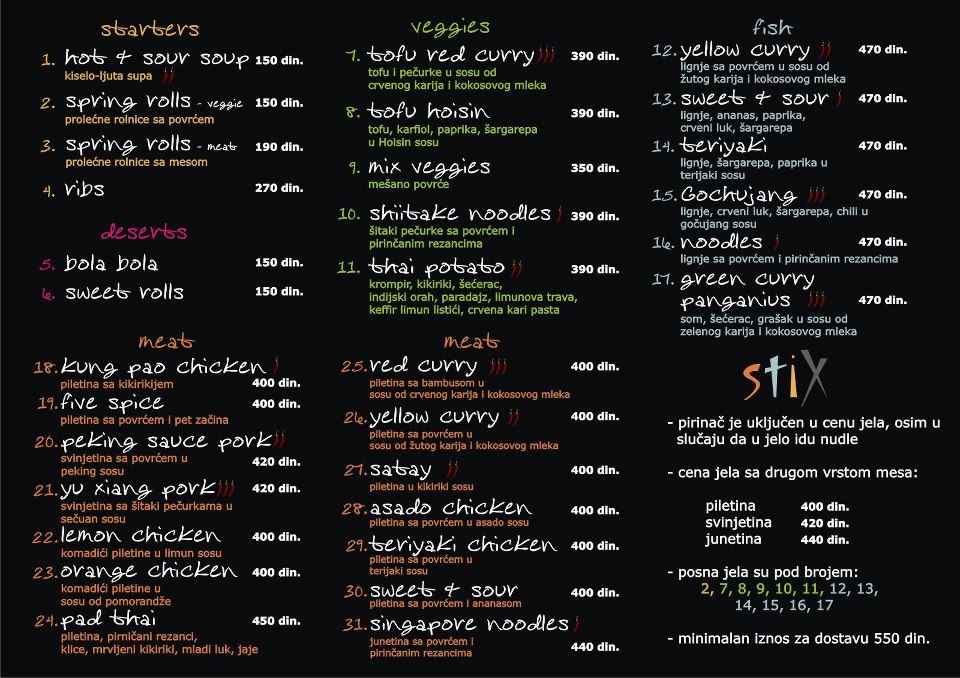 starters
1. hot & sour soup 150 din.
kiselo-ljuta supa
2. spring rolls - veggie 150 din.
prolećne rolnice sa povrćem
3. spring rolls - meat 190 din.
prolećne rolnice sa mesom
4. ribs 270 din.
deserts
5. bola bola 150 din.
6. sweet rolls 150 din.
veggies
7. tofu red curry 390 din.
tofu i pečurke u sosu od
crvenog karija i kokosovog mleka
8. tofu hoisin 390 din.
tofu, karfiol, paprika, šargarepa
u Hoisin sosu
9. mix veggies 350 din.
mešano povrće
10. shiitake noodles 390 din.
šitaki pečurke sa povrćem i
pirinčanim rezancima
11. thai potato 390 din.
krompir, kikiriki, šećerac,
indijski orah, paradajz, limunova trava,
keffir limun listići, crvena kari pasta
fish
12. yellow curry 470 din.
lignje sa povrćem u sosu od
žutog karija i kokosovog mleka
13. sweet & sour 470 din.
lignje, ananas, paprika,
crveni luk, šargarepa
14. teriyaki 470 din.
lignje, šargarepa, paprika u
terijaki sosu
15. Gochujang 470 din.
lignje, crveni luk, šargarepa, chili u
gočujang sosu
16. noodles 470 din.
lignje sa povrćem i pirinčanim rezancima
17. green curry
panganius 470 din.
som, šećerac, grašak u sosu od
zelenog karija i kokosovog mleka
meat
18. kung pao chicken
piletina sa kikirikijem 400 din.
19. five spice 400 din.
piletina sa povrćem i pet začina
20. peking sauce pork
svinjetina sa povrćem u 420 din.
peking sosu
21. yu xiang pork 420 din.
svinjetina sa šitaki pečurkama u
sečuan sosu
22. lemon chicken 400 din.
komadići piletine u limun sosu
23. orange chicken 400 din.
komadići piletine u
sosu od pomorandže
24. pad thai 450 din.
piletina, pirničani rezanci,
klice, mrvljeni kikiriki, mladi luk, jaje
meat
25. red curry 400 din.
piletina sa bambusom u
sosu od crvenog karija i kokosovog mleka
26. yellow curry 400 din.
piletina sa povrćem u
sosu od žutog karija i kokosovog mleka
27. satay 400 din.
piletina u kikiriki sosu
28. asado chicken 400 din.
piletina sa povrćem u asado sosu
29. teriyaki chicken 400 din.
piletina sa povrćem u
terijaki sosu
30. sweet & sour 400 din.
piletina sa povrćem i ananasom
31. singapore noodles
junetina sa povrćem i 440 din.
pirinčanim rezancima
stiX
- pirinač je uključen u cenu jela, osim u
slučaju da u jelo idu nudle
- cena jela sa drugom vrstom mesa:
piletina 400 din.
svinjetina 420 din.
junetina 440 din.
- posna jela su pod brojem:
2, 7, 8, 9, 10, 11, 12, 13,
14, 15, 16, 17
- minimalan iznos za dostavu 550 din.